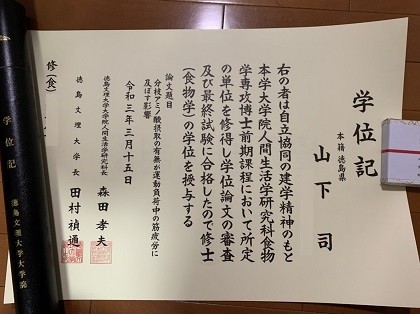 学位記
本籍 徳島県
山下 司
右の者は自立協同の建学精神のもと
本学大学院人間生活学研究科食物
学専攻博士前期課程において所定
の単位を修得し学位論文の審査
及び最終試験に合格したので修士
(食物学)の学位を授与する
論文題目
分枝アミノ酸摂取の有無が運動負荷中の筋疲労に
及ぼす影響
令和三年三月十五日
徳島文理大学大学院人間生活学研究科長 森田孝夫
徳島文理大学長 田村禎通
修(食)
学位記
徳島文理大学大学院